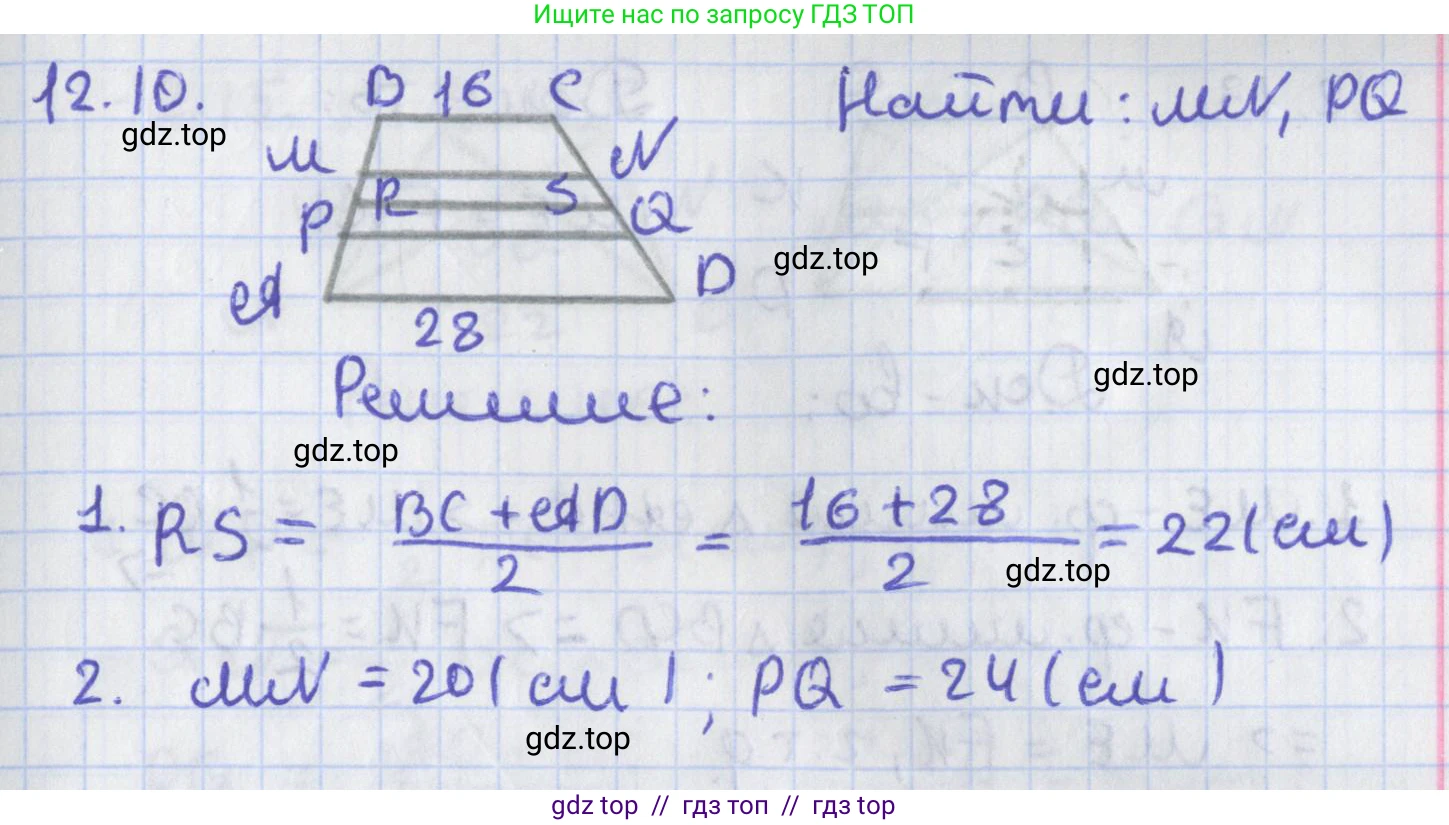 Ищите нас по запросу ГДЗ ТОП
12.10. B 16 C Найти: MN, PQ
gdz.top
M N
R S
P Q
gdz.top
A D
28
Решение:
gdz.top
gdz.top
1. RS = BC + AD / 2 = 16 + 28 / 2 = 22 (см)
gdz.top
2. MN = 20 (см); PQ = 24 (см)
gdz.top
gdz top // гдз топ // гдз top